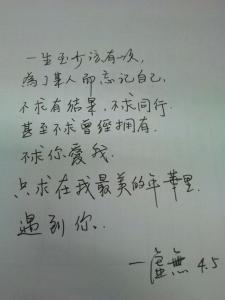 一生至少该有一次,
為了某人而忘记自己,
不求有结果,不求同行.
甚至不求曾經拥有.
不求你愛我.
只求在我最美的年華里.
遇到你..
一虛無 4.5